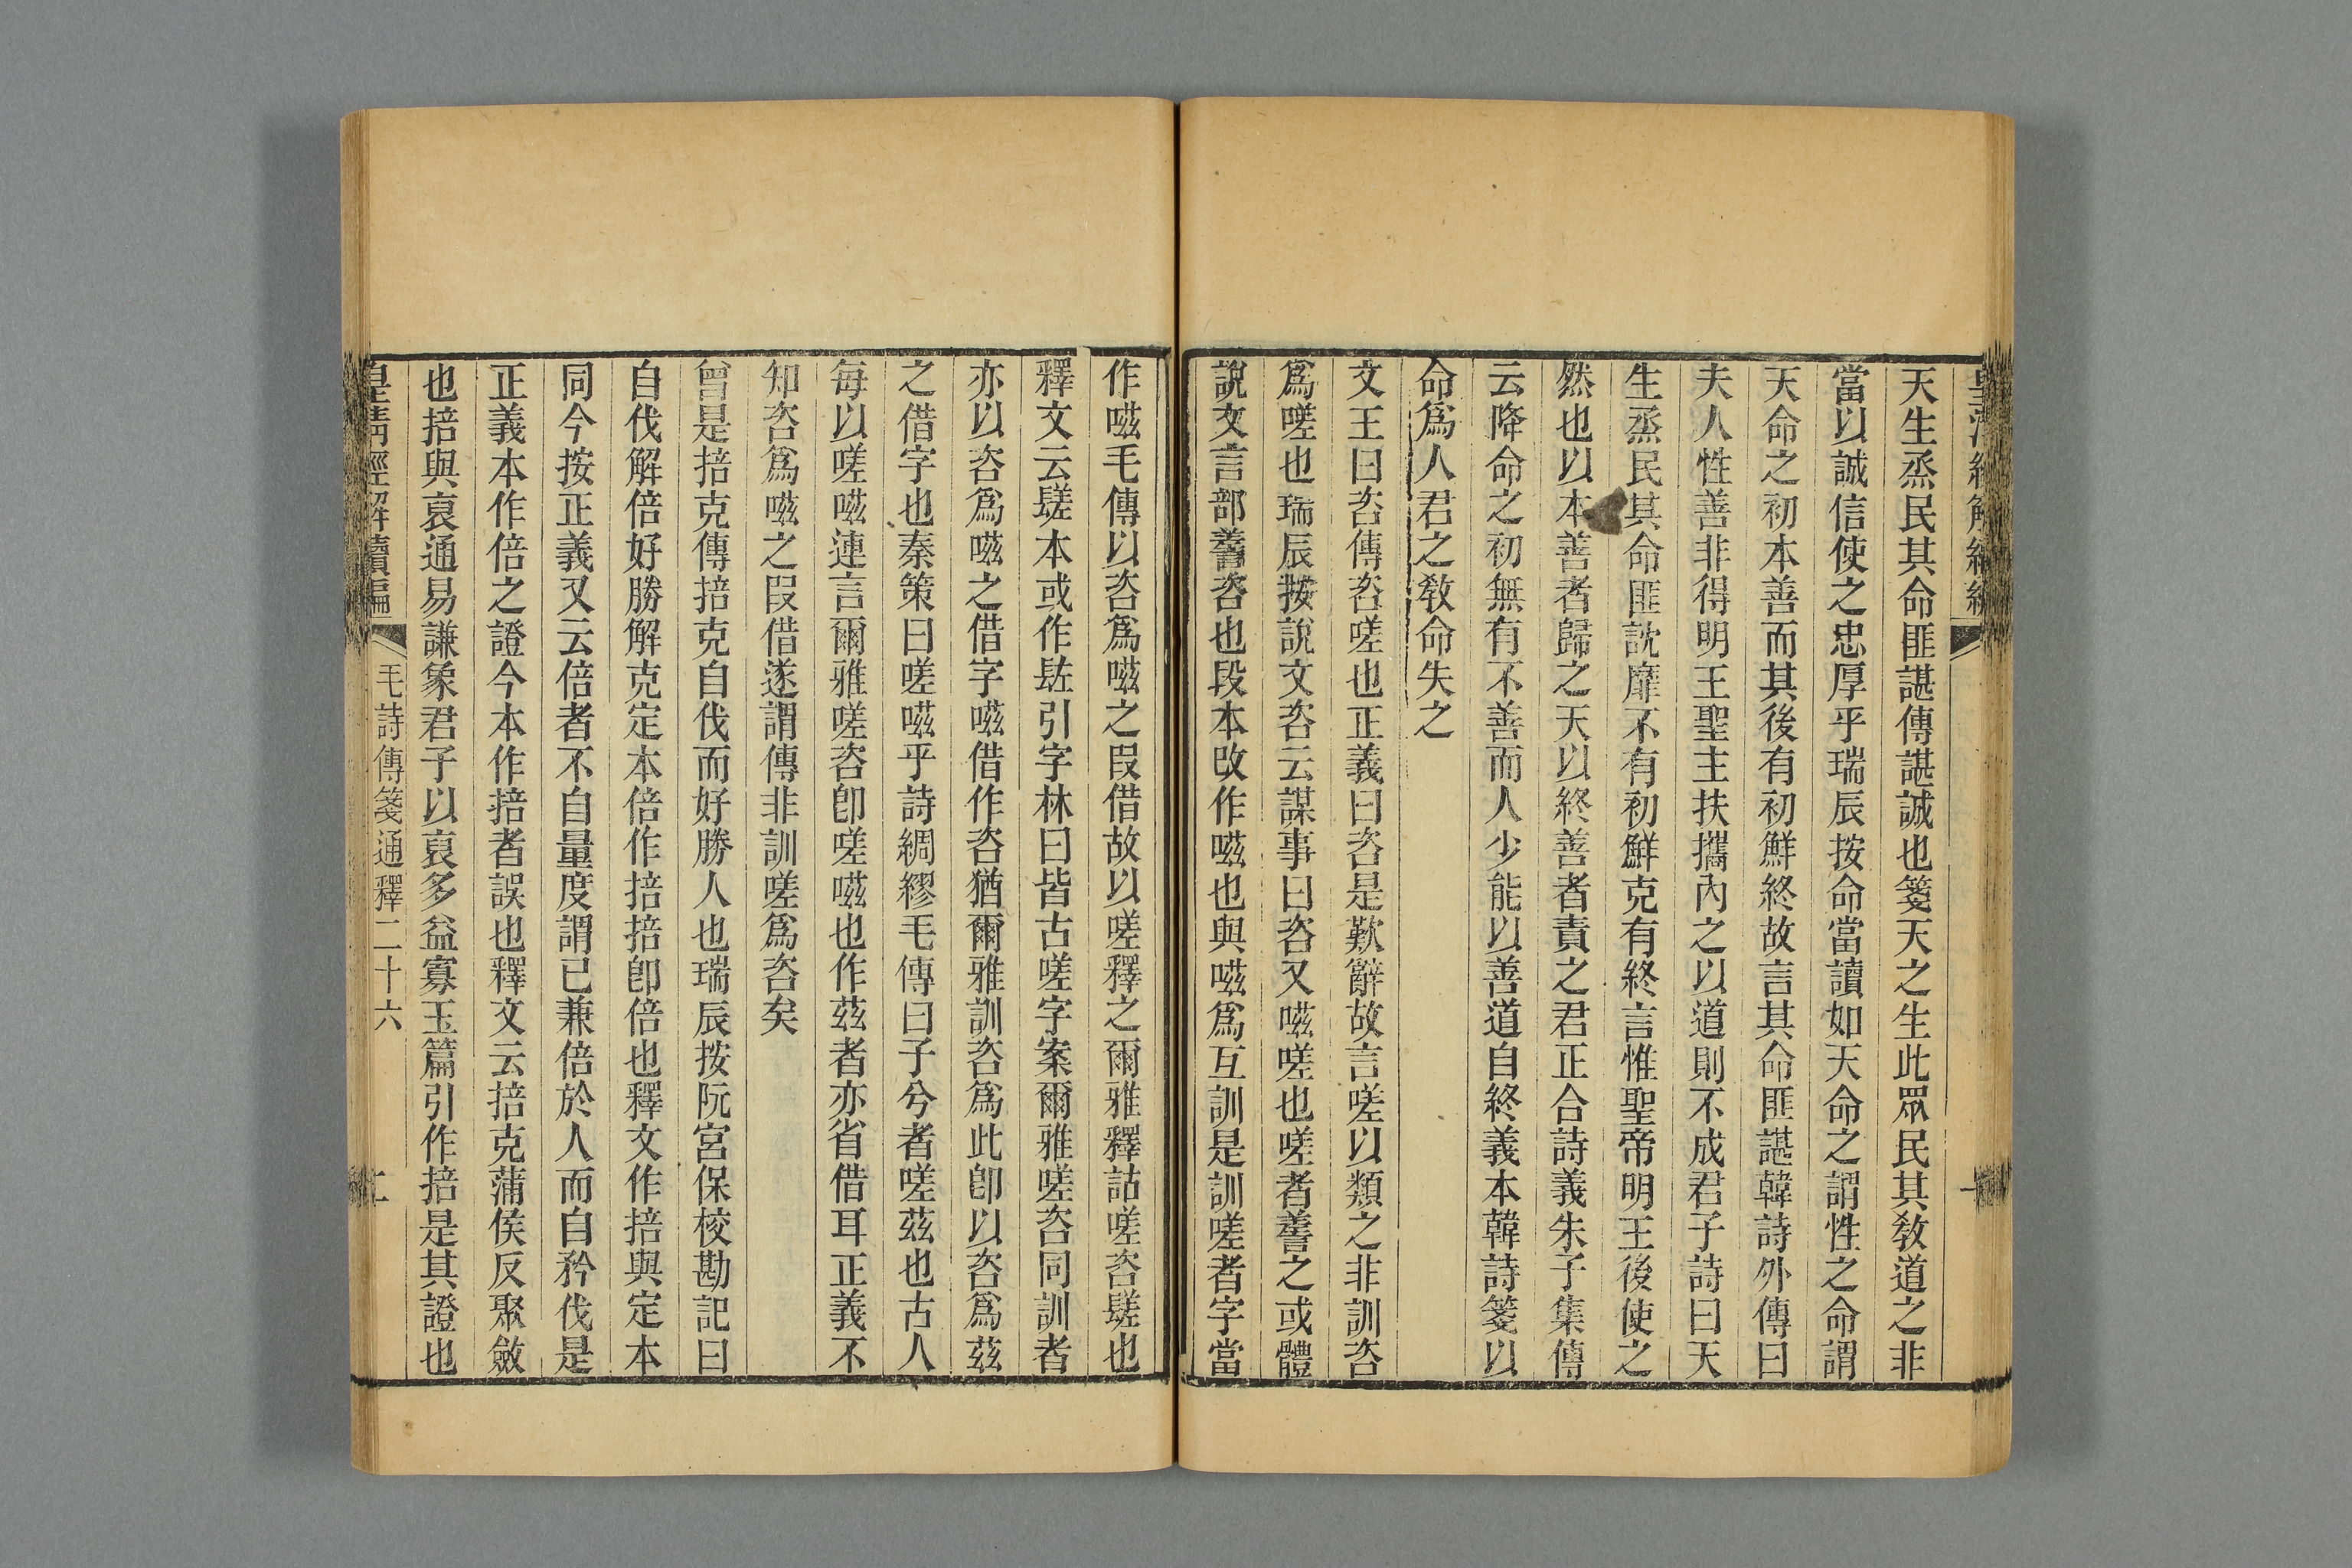 天生烝民其命匪諶傳諶誠也箋天之生此眾民其敎道之非
當以誠信使之忠厚乎瑞辰按命當讀如天命之謂性之命謂
天命之初本善而其後有初鮮終故言其命匪諶韓詩外傳曰
夫人性善非得明王聖主扶攜內之以道則不成君子詩曰天
生烝民其命匪訦靡不有初鮮克有終言惟聖帝明王後使之
然也以本善者歸之天以終善者責之君正合詩義朱子集傳
云降命之初無有不善而人少能以善道自終義本韓詩箋以
命爲人君之敎命失之
文王曰咨傳咨嗟也正義曰咨是歎辭故言嗟以類之非訓咨
爲嗟也瑞辰按說文咨云謀事曰咨又嗞嗟也嗟者謩之或體
說文言部謩咨也段本改作嗞也與嗞爲互訓是訓嗟者字當
作嗞毛傳以咨爲嗞之叚借故以嗟釋之爾雅釋詁嗟咨䰈也
釋文云䰈本或作䰈引字林曰皆古嗟字案爾雅嗟咨同訓者
亦以咨爲嗞之借字嗞借作咨猶爾雅訓咨爲此卽以咨爲茲
之借字也秦策曰嗟嗞乎詩綢繆毛傳曰子兮者嗟茲也古人
每以嗟嗞連言爾雅嗟咨卽嗟嗞也作茲者亦省借耳正義不
知咨爲嗞之叚借遂謂傳非訓嗟爲咨矣
曾是掊克傳掊克自伐而好勝人也瑞辰按阮宮保校勘記曰
自伐解倍好勝解克定本倍作掊掊卽倍也釋文作掊與定本
同今按正義又云倍者不自量度謂已兼倍於人而自矜伐是
正義本作倍之證今本作掊者誤也釋文云掊克蒲侯反聚斂
也掊與裒通易謙象君子以裒多益寡玉篇引作掊是其證也
皇淸經解續編
毛詩傳箋通釋二十六
二